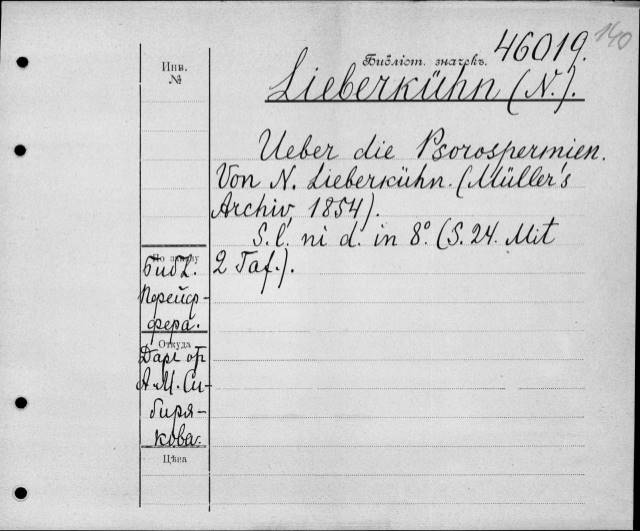 140
46019.
Библіот. значекъ.
Инв.
№
Lieberkühn (N.).
Ueber die Psorospermien.
Von N. Lieberkühn. (Müller's
Archiv, 1854).
S. l. ni d. in 8°. (S. 24. Mit
2 Taf.).
Библ.
Перейф-
фера.
Откуда
Даръ от
А. М. Си-
биря-
кова.
Цѣна